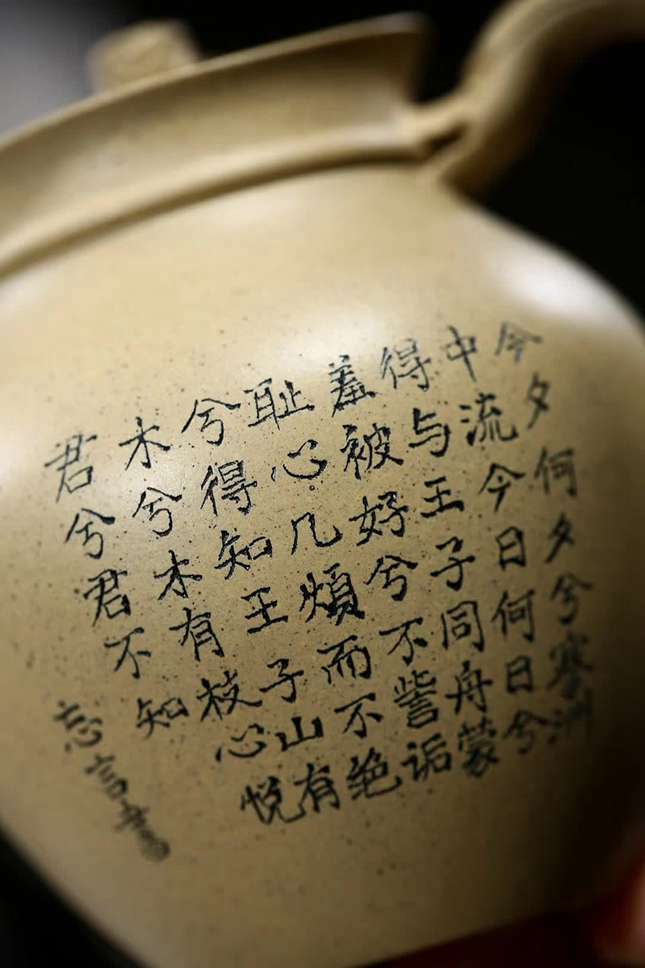 今夕何夕兮搴洲
中流今日何日兮
得与王子同舟蒙
羞被好兮不訾诟
耻心几煩而不绝
兮得知王子山有
木兮木有枝心悦
君兮君不知
忘言書